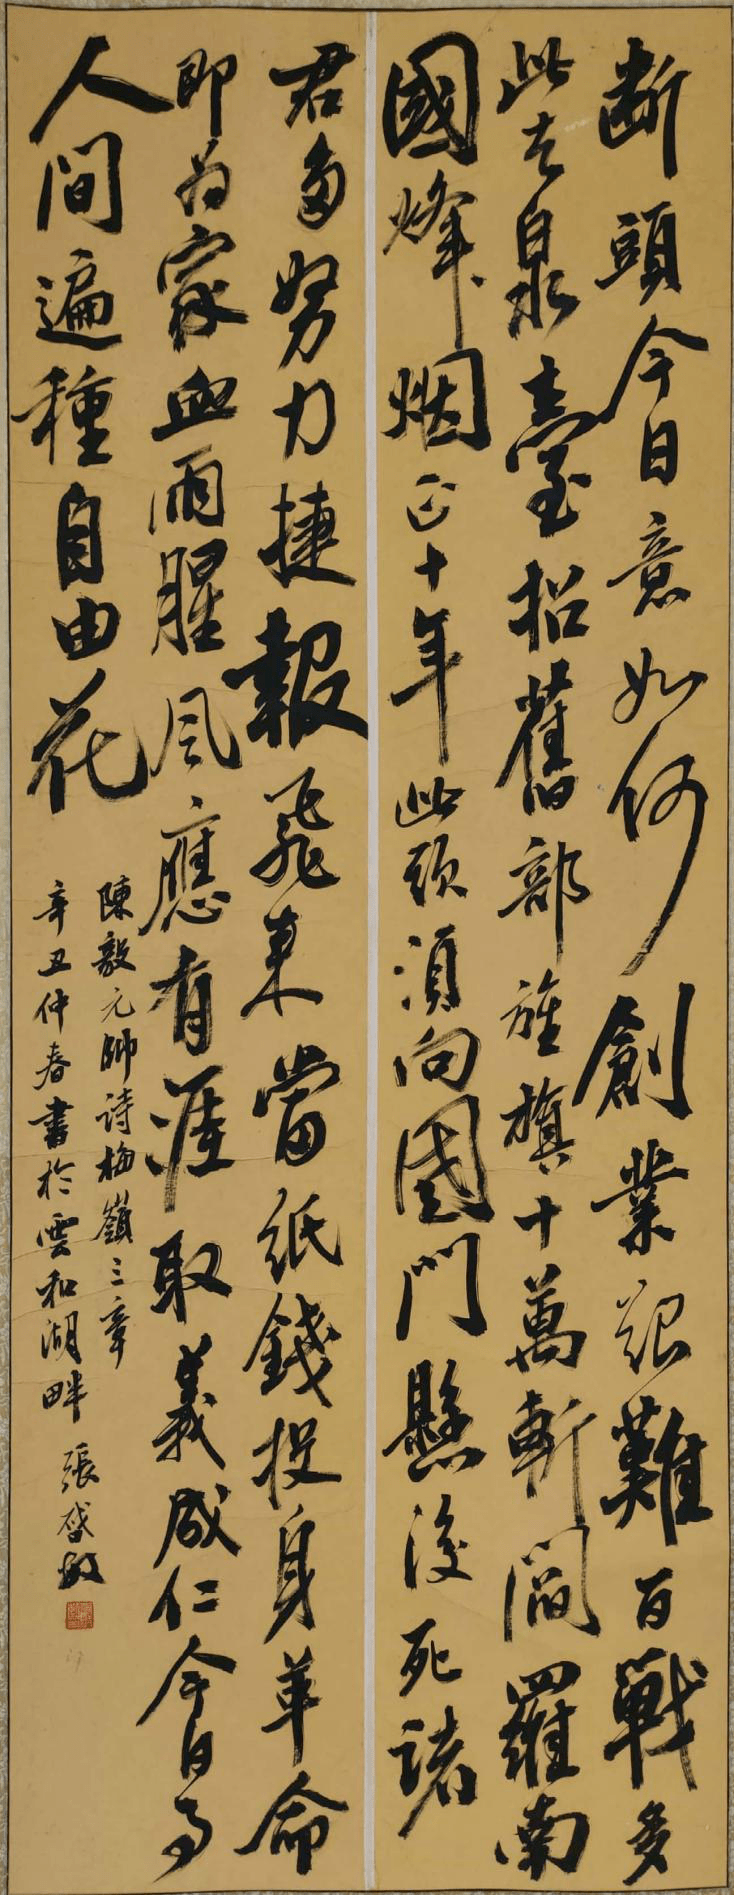 斷頭今日意如何創業艱難百戰多
此去泉臺招舊部旌旗十萬斬閻羅南
國烽烟正十年此頭須向國門懸後死諸
君多努力捷報飛來當紙錢投身革命
即為家血雨腥風應有涯取義成仁今日事
人間遍種自由花
陳毅元帥詩梅嶺三章
辛丑仲春書於雲和湖畔 張啓敏